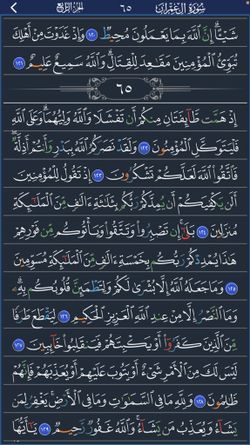 سُورَةُ آلِ عِمۡرَانَ ٦٥ الجزء الرابع
شَيۡـًٔاۗ إِنَّ ٱللَّهَ بِمَا يَعۡمَلُونَ مُحِيطٞ ١٢٠ وَإِذۡ غَدَوۡتَ مِنۡ أَهۡلِكَ
تُبَوِّئُ ٱلۡمُؤۡمِنِينَ مَقَٰعِدَ لِلۡقِتَالِۗ وَٱللَّهُ سَمِيعٌ عَلِيمٌ ١٢١
٦٥
إِذۡ هَمَّت طَّآئِفَتَانِ مِنكُمۡ أَن تَفۡشَلَا وَٱللَّهُ وَلِيُّهُمَاۗ وَعَلَى ٱللَّهِ
فَلۡيَتَوَكَّلِ ٱلۡمُؤۡمِنُونَ ١٢٢ وَلَقَدۡ نَصَرَكُمُ ٱللَّهُ بِبَدۡرٖ وَأَنتُمۡ أَذِلَّةٞۖ
فَٱتَّقُواْ ٱللَّهَ لَعَلَّكُمۡ تَشۡكُرُونَ ١٢٣ إِذۡ تَقُولُ لِلۡمُؤۡمِنِينَ
أَلَن يَكۡفِيَكُمۡ أَن يُمِدَّكُمۡ رَبُّكُم بِثَلَٰثَةِ ءَالَٰفٖ مِّنَ ٱلۡمَلَٰٓئِكَةِ
مُنزَلِينَ ١٢٤ بَلَىٰٓۚ إِن تَصۡبِرُواْ وَتَتَّقُواْ وَيَأۡتُوكُم مِّن فَوۡرِهِمۡ
هَٰذَا يُمۡدِدۡكُمۡ رَبُّكُم بِخَمۡسَةِ ءَالَٰفٖ مِّنَ ٱلۡمَلَٰٓئِكَةِ مُسَوِّمِينَ
١٢٥ وَمَا جَعَلَهُ ٱللَّهُ إِلَّا بُشۡرَىٰ لَكُمۡ وَلِتَطۡمَئِنَّ قُلُوبُكُم بِهِۦۗ
وَمَا ٱلنَّصۡرُ إِلَّا مِنۡ عِندِ ٱللَّهِ ٱلۡعَزِيزِ ٱلۡحَكِيمِ ١٢٦ لِيَقۡطَعَ طَرَفٗا
مِّنَ ٱلَّذِينَ كَفَرُوٓاْ أَوۡ يَكۡبِتَهُمۡ فَيَنقَلِبُواْ خَآئِبِينَ ١٢٧
لَيۡسَ لَكَ مِنَ ٱلۡأَمۡرِ شَيۡءٌ أَوۡ يَتُوبَ عَلَيۡهِمۡ أَوۡ يُعَذِّبَهُمۡ فَإِنَّهُمۡ
ظَٰلِمُونَ ١٢٨ وَلِلَّهِ مَا فِي ٱلسَّمَٰوَٰتِ وَمَا فِي ٱلۡأَرۡضِۚ يَغۡفِرُ لِمَن
يَشَآءُ وَيُعَذِّبُ مَن يَشَآءُۚ وَٱللَّهُ غَفُورٞ رَّحِيمٞ ١٢٩ يَٰٓأَيُّهَا